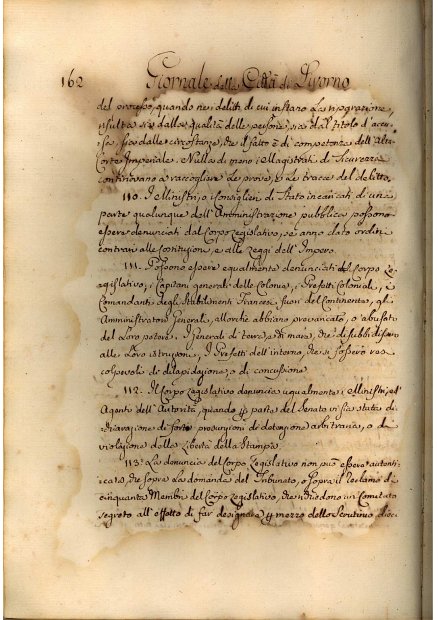 162 Giornale della Città di Livorno
del processo, quando nei delitti di cui instaro La
risulta sia dalla qualità delle persone, sia dal titolo d'accu-
sa, sia dalle circostanze, che il fatto è di competenza dell'Alta
Corte Imperiale. Nulla di meno i Magistrati di Sicurezza
continovano a raccogliere Le prove, e Le tracce del delitto.
110. I Ministri, o Consiglieri di Stato incaricati di una
parte qualunque dell'Amministrazione pubblica possono
essere denunciati dal Corpo Legislativo, se anno dato ordini
contrari alle costituzioni, e alle Leggi dell'Impero.
111. Possono essere equalmente denunciati dal Corpo Le-
gislativo, i Capitani generali delle Colonie, i Prefetti Coloniali, i
Comandanti degli Stabilimenti Francesi fuori del Continente, gli
Amministratori Generali, allorchè abbiano prevaricato, o abusato
del Loro potere. I Generali di terra, e di mare, che
alle Loro istruzioni. I Prefetti dell'interno, che si fossero resi
colpevoli di dilapidazione, o di concussione.
112. Il Corpo Legislativo denuncia ugualmente i Ministri, ed
Agenti dell'Autorità, quando per parte del Senato vi sia stata di-
chiarazione di forte presunzioni di detenzione arbitraria, o di
violazione della Libertà della Stampa.
113. La denuncia del Corpo Legislativo non può essere autenti-
cata, che sopra La domanda del Tribunato, o sopra il reclamo di
cinquanta Membri del Corpo Legislativo, che richiedono un Comitato
segreto all'effetto di far designare per mezzo dello Scrutinio dieci